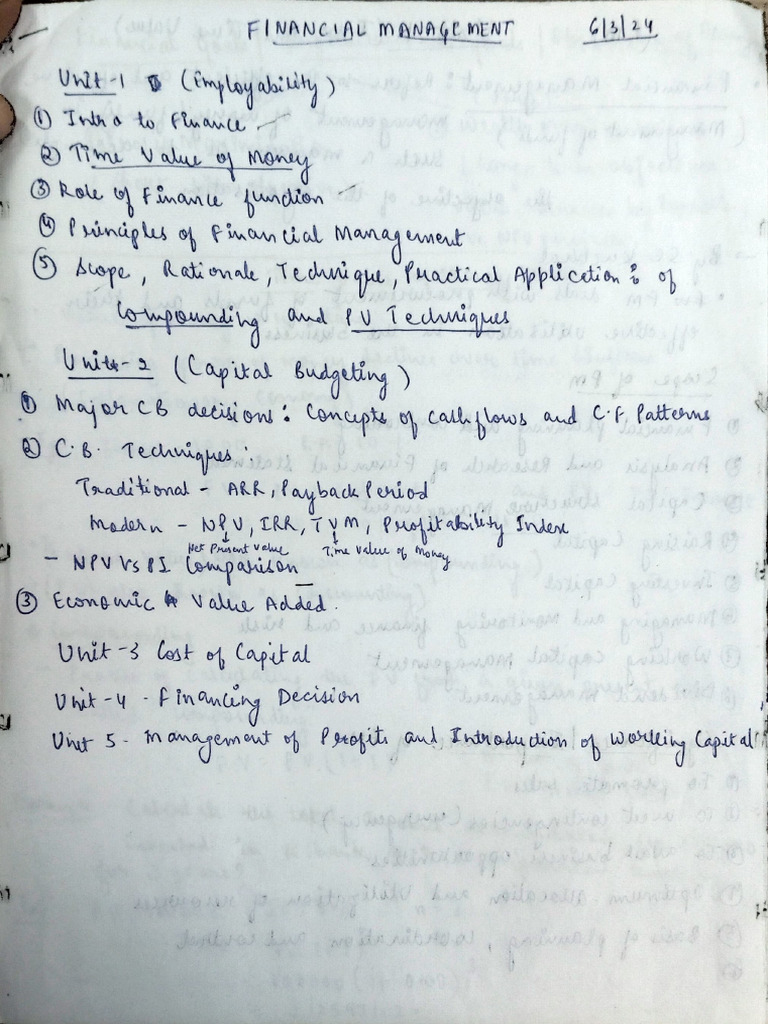 FINANCIAL MANAGEMENT 6/3/24
Unit-1 (Employability)
① Intro to Finance
② Time Value of Money
③ Role of Finance function
④ Principles of Financial Management
⑤ Scope, Rationale, Technique, Practical Application: of
Compounding and PV Techniques
Unit-2 (Capital Budgeting)
① Major CB decisions: Concepts of cashflows and C.F. Patterns
② C.B. Techniques:
Traditional - ARR, Payback Period
Modern - NPV, IRR, TVM, Profitability Index
Net Present Value Time Value of Money
- NPV Vs PI Comparison
③ Economic Value Added.
Unit-3 Cost of Capital
Unit-4 - Financing Decision
Unit 5 - Management of Profits and Introduction of Working Capital